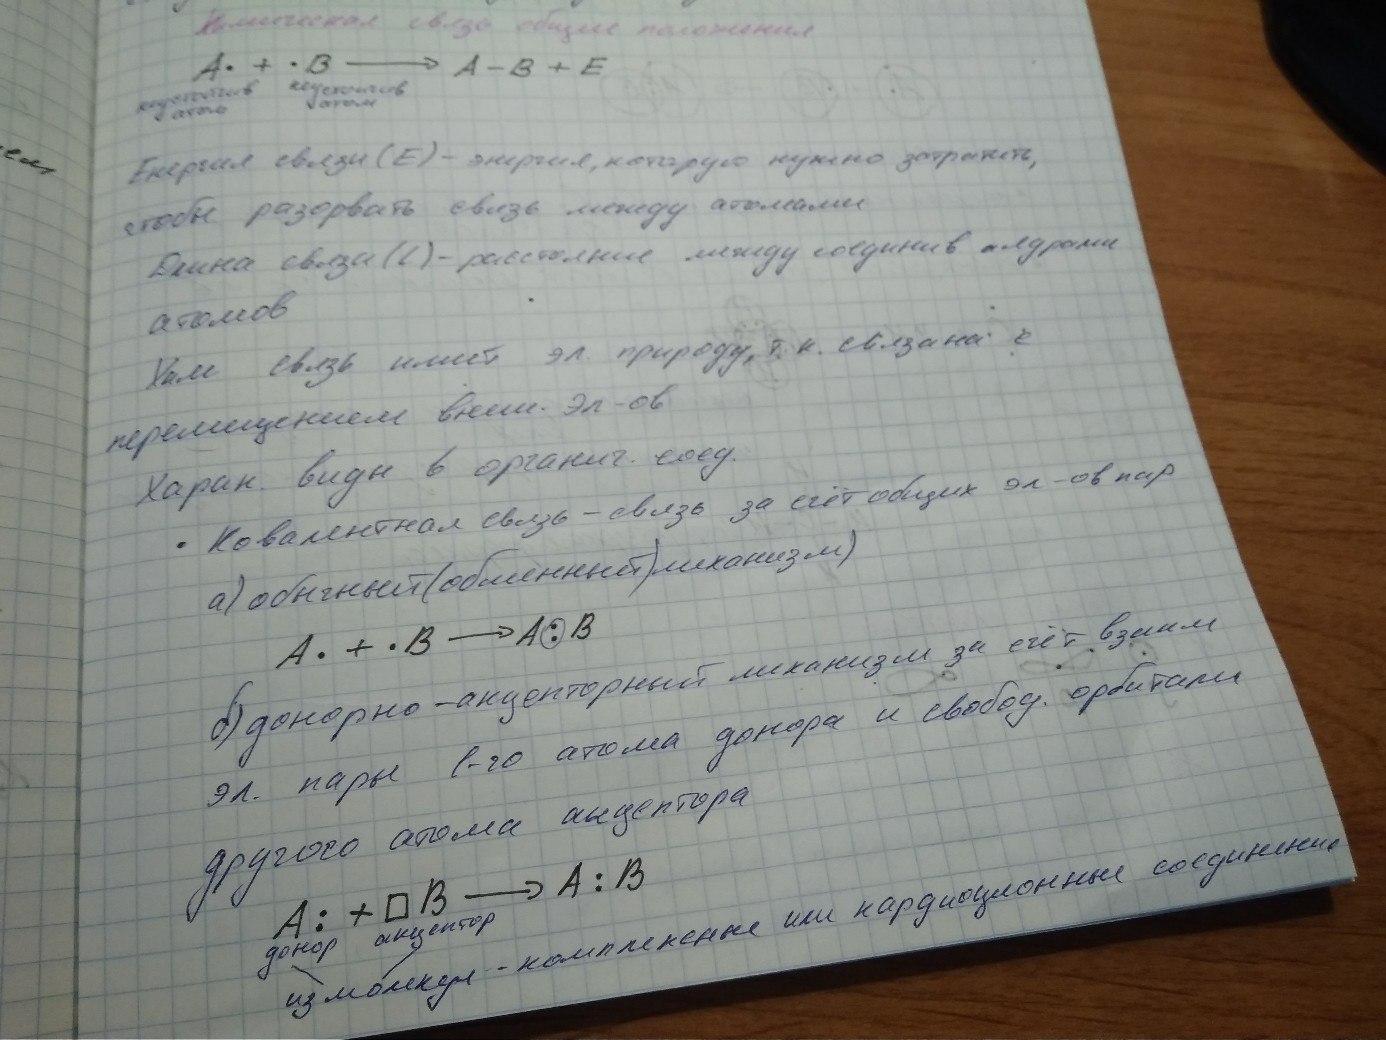 Химическая связь общие положения
А· + ·В → А – В + Е
неустойчив неустойчив
атом атом
Енергия связи (Е) – энергия, которую нужно затратить,
чтобы разорвать связь между атомами
Длина связи (l) – расстояние между соединив ядрами
атомов
Хим связь имеет эл. природу, т. к. связана с
перемещением внеш. эл-ов
Харак. виды в органич. соед.
• Ковалентная связь – связь за счёт общих эл-ов пар
а) обычный (обменный) механизм)
А· + ·В → А : В
б) донорно-акцепторный механизм за счёт взаим
эл. пары 1-го атома донора и свобод. орбитали
другого атома акцептора
А : + □ В → А : В
донор акцептор
из молекул – комплексные или соединение